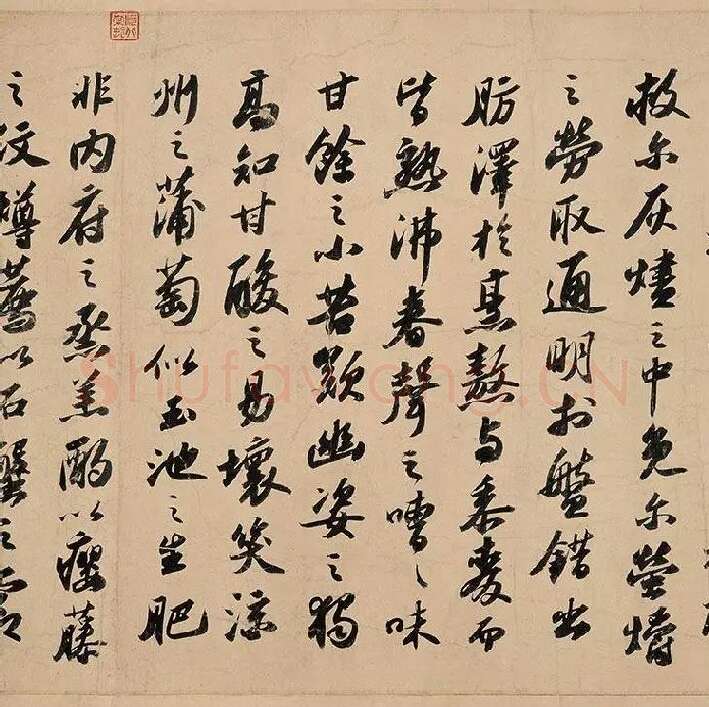 救尔灰燼之中免尔螢爝
之勞取通明於盤錯出
肪澤於烹熬与黍麥而
皆熟沸舂聲之嘈〻味
甘餘之小苦歎幽姿之獨
高知甘酸之易壞笑涼
州之蒲萄似玉池之生肥
非內府之蒸羔酌以癭藤
之紋樽薦以石蟹之霜
Shufawang.CN